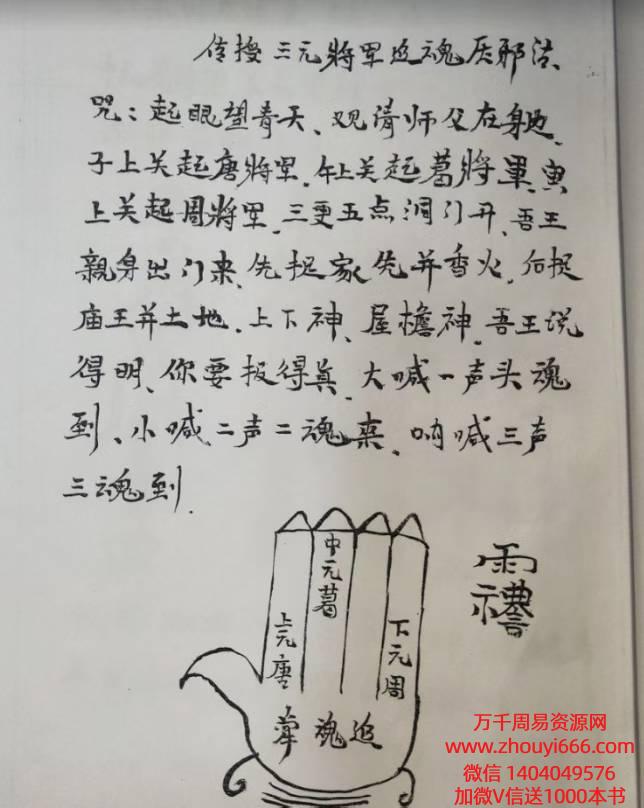 传授三元将军追魂厌邪法、
咒：起眼望青天、观请师父在身边、
子上关起唐将军、午上关起葛将军、寅
上关起周将军、三更五点洞门开、吾王
亲身出门来、先捉家先并香火、后捉
庙王并土地、上下神、屋檐神、吾王说
得明、你要报得真、大喊一声头魂
到、小喊二声二魂来、呐喊三声
三魂到.
中元葛
上元唐
下元周
魂追
万千周易资源网
www.zhouyi666.com
微信 1404049576
加微V信送1000本书